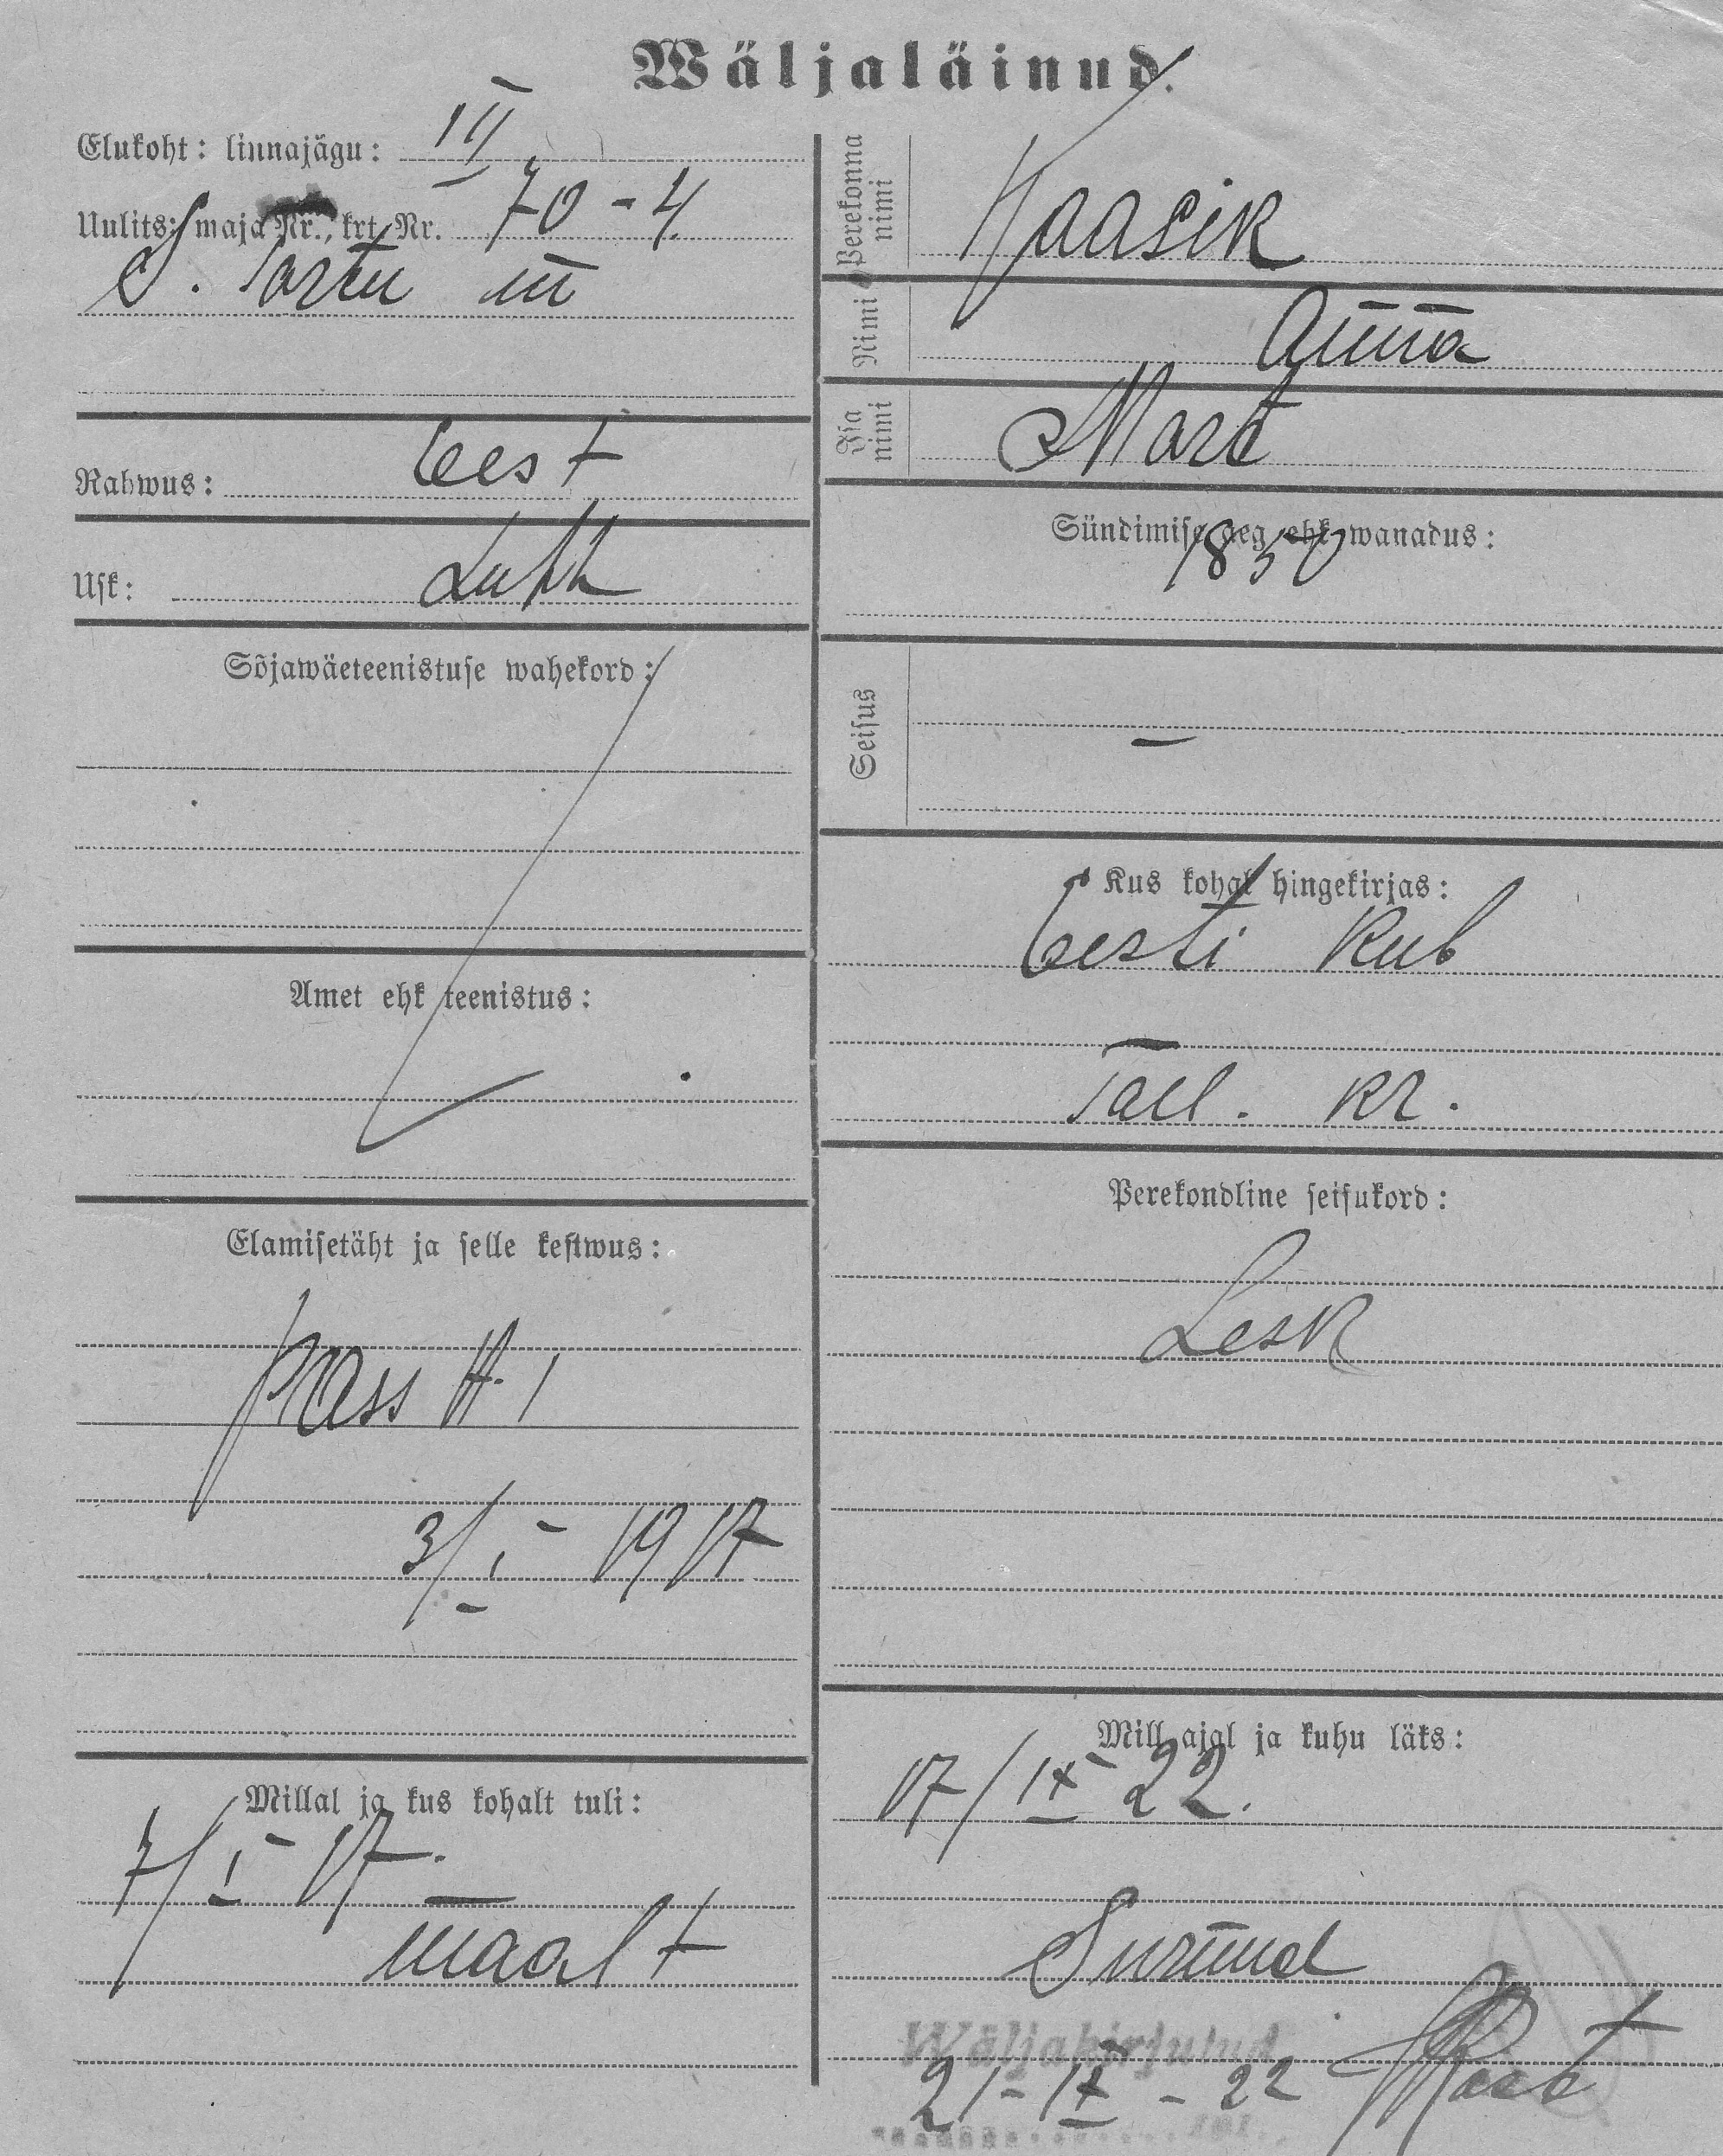 Wäljaläinud.
Elukoht: linnajägu: III
Uulits: maja Nr., krt. Nr. 70-4
S. Tartu m
Rahwus: Eest
Usk: Luth
Sõjawäeteenistuse wahekord:
Amet ehk teenistus:
Elamisetäht ja selle kestwus:
pass № 1
3/I 1917
Millal ja kus kohalt tuli:
7/I 17.
maalt
Perekonna nimi Kaasik
Nimi Anna
Isa nimi Mart
Sündimise aeg ehk wanadus:
1850
Seisus —
Kus kohal hingekirjas:
Eesti kub
Tall. kr.
Perekondline seisukord:
Lesk
Mill ajal ja kuhu läks:
17/IX 22.
Surnud
Wäljakirjutud
21-IX-22